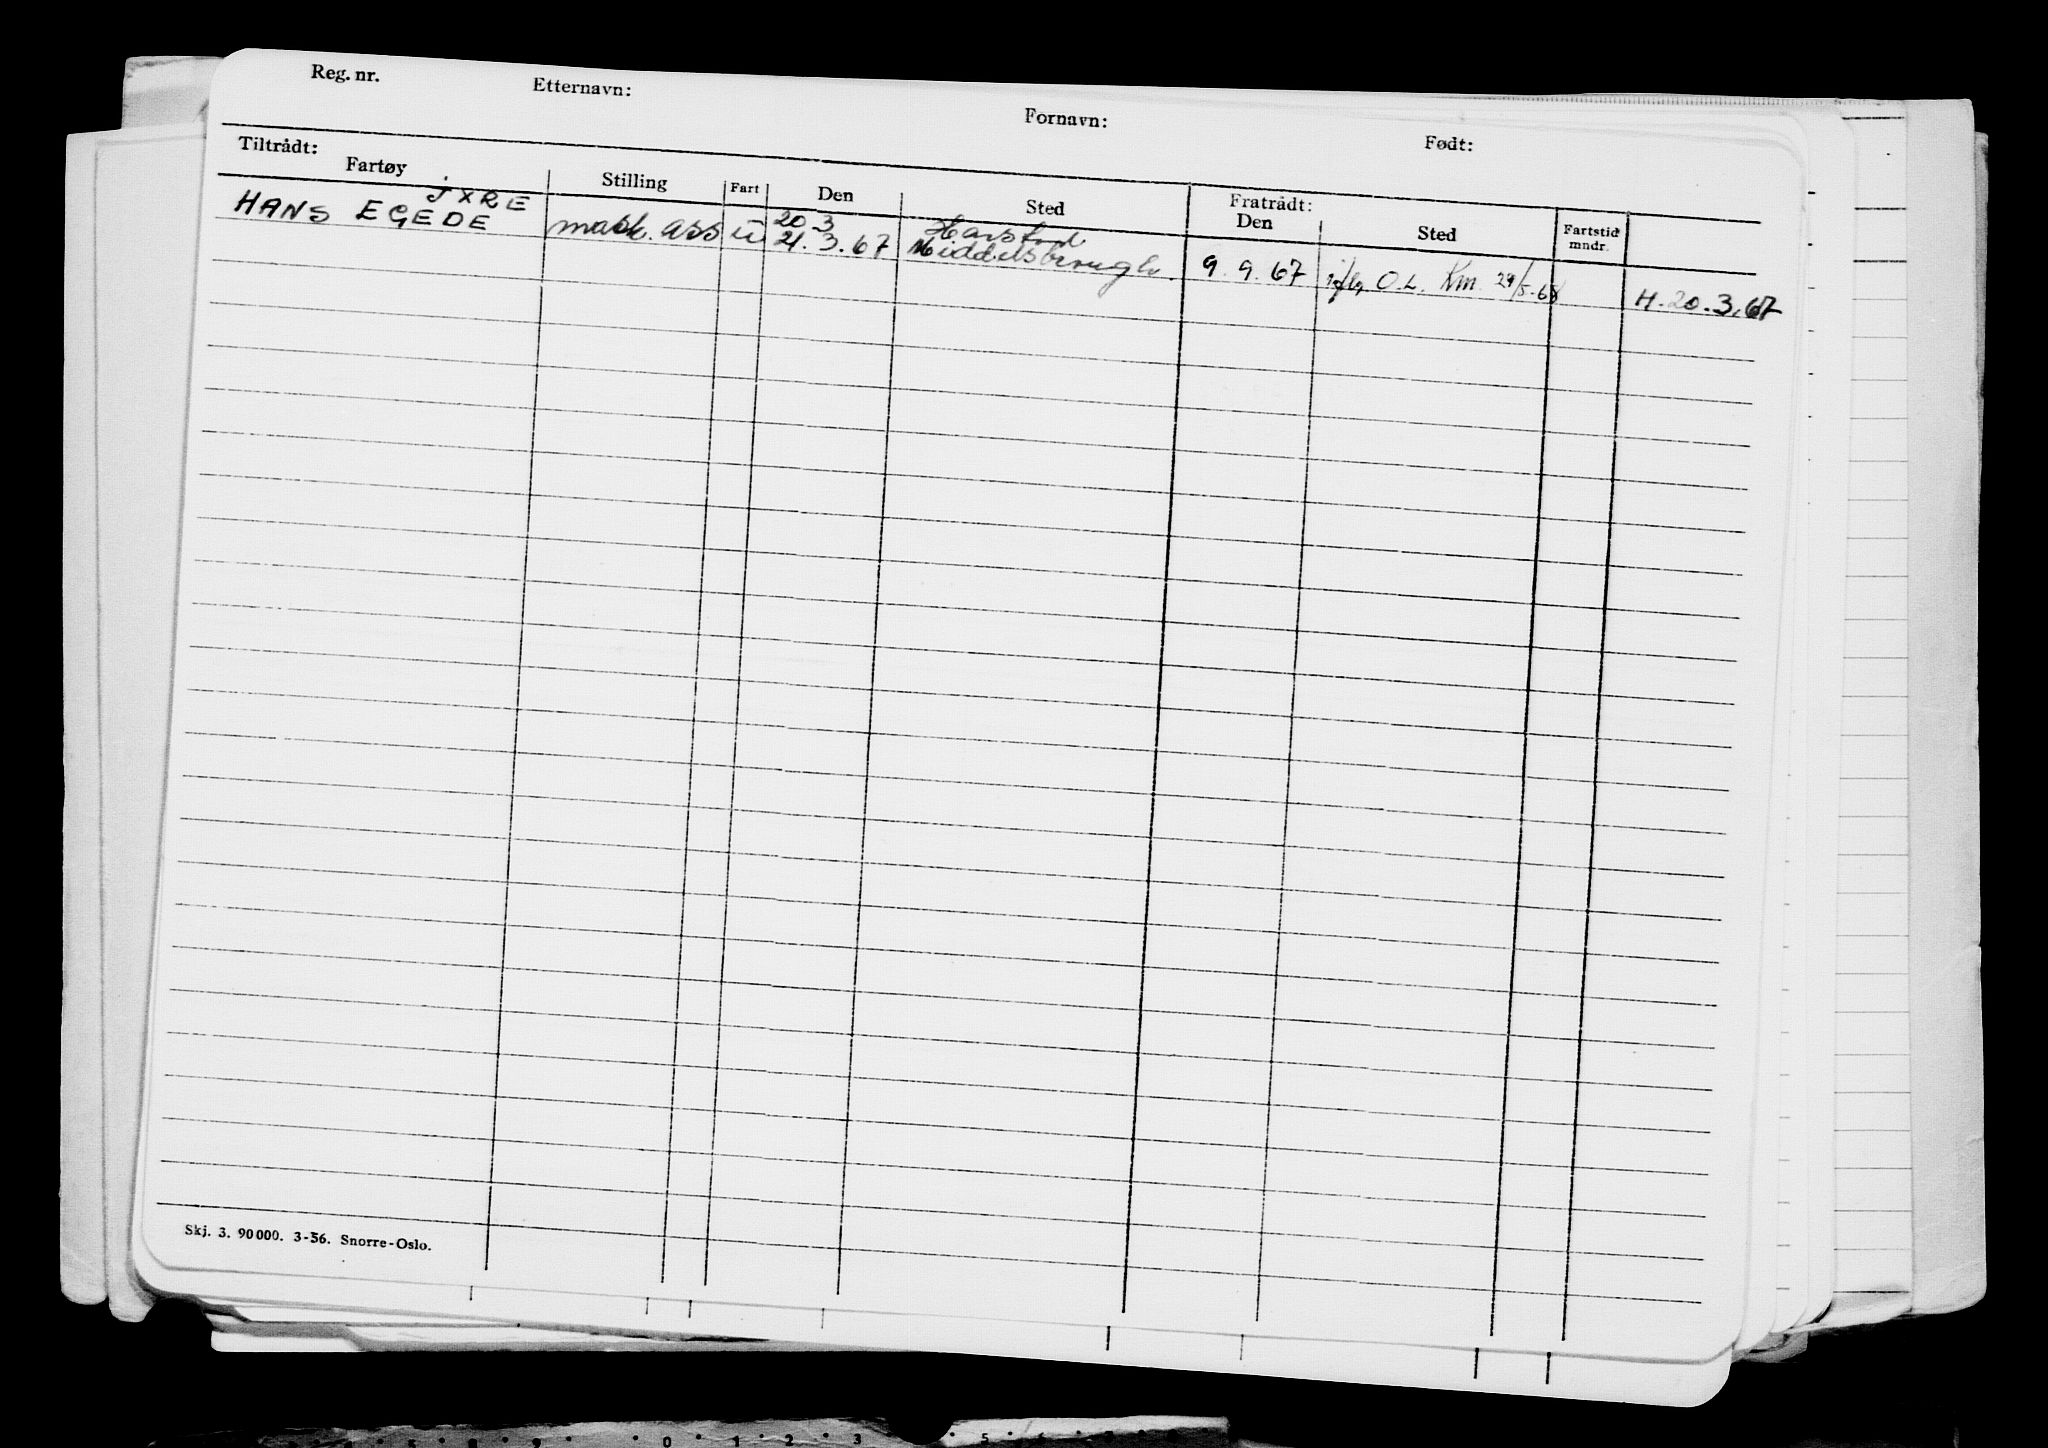 Reg. nr. Etternavn: Fornavn: Født:
Tiltrådt: Fratrådt:
Fartøy Stilling Fart Den Sted Den Sted Fartstid mndr.
JXRE 20.3 Harstad
HANS EGEDE mask. ass u 21.3.67 Middelsbrough. 9.9.67 O.L. Km. 29/5-68 H. 20.3.67
Skj. 3. 90 000. 3-56. Snorre-Oslo.